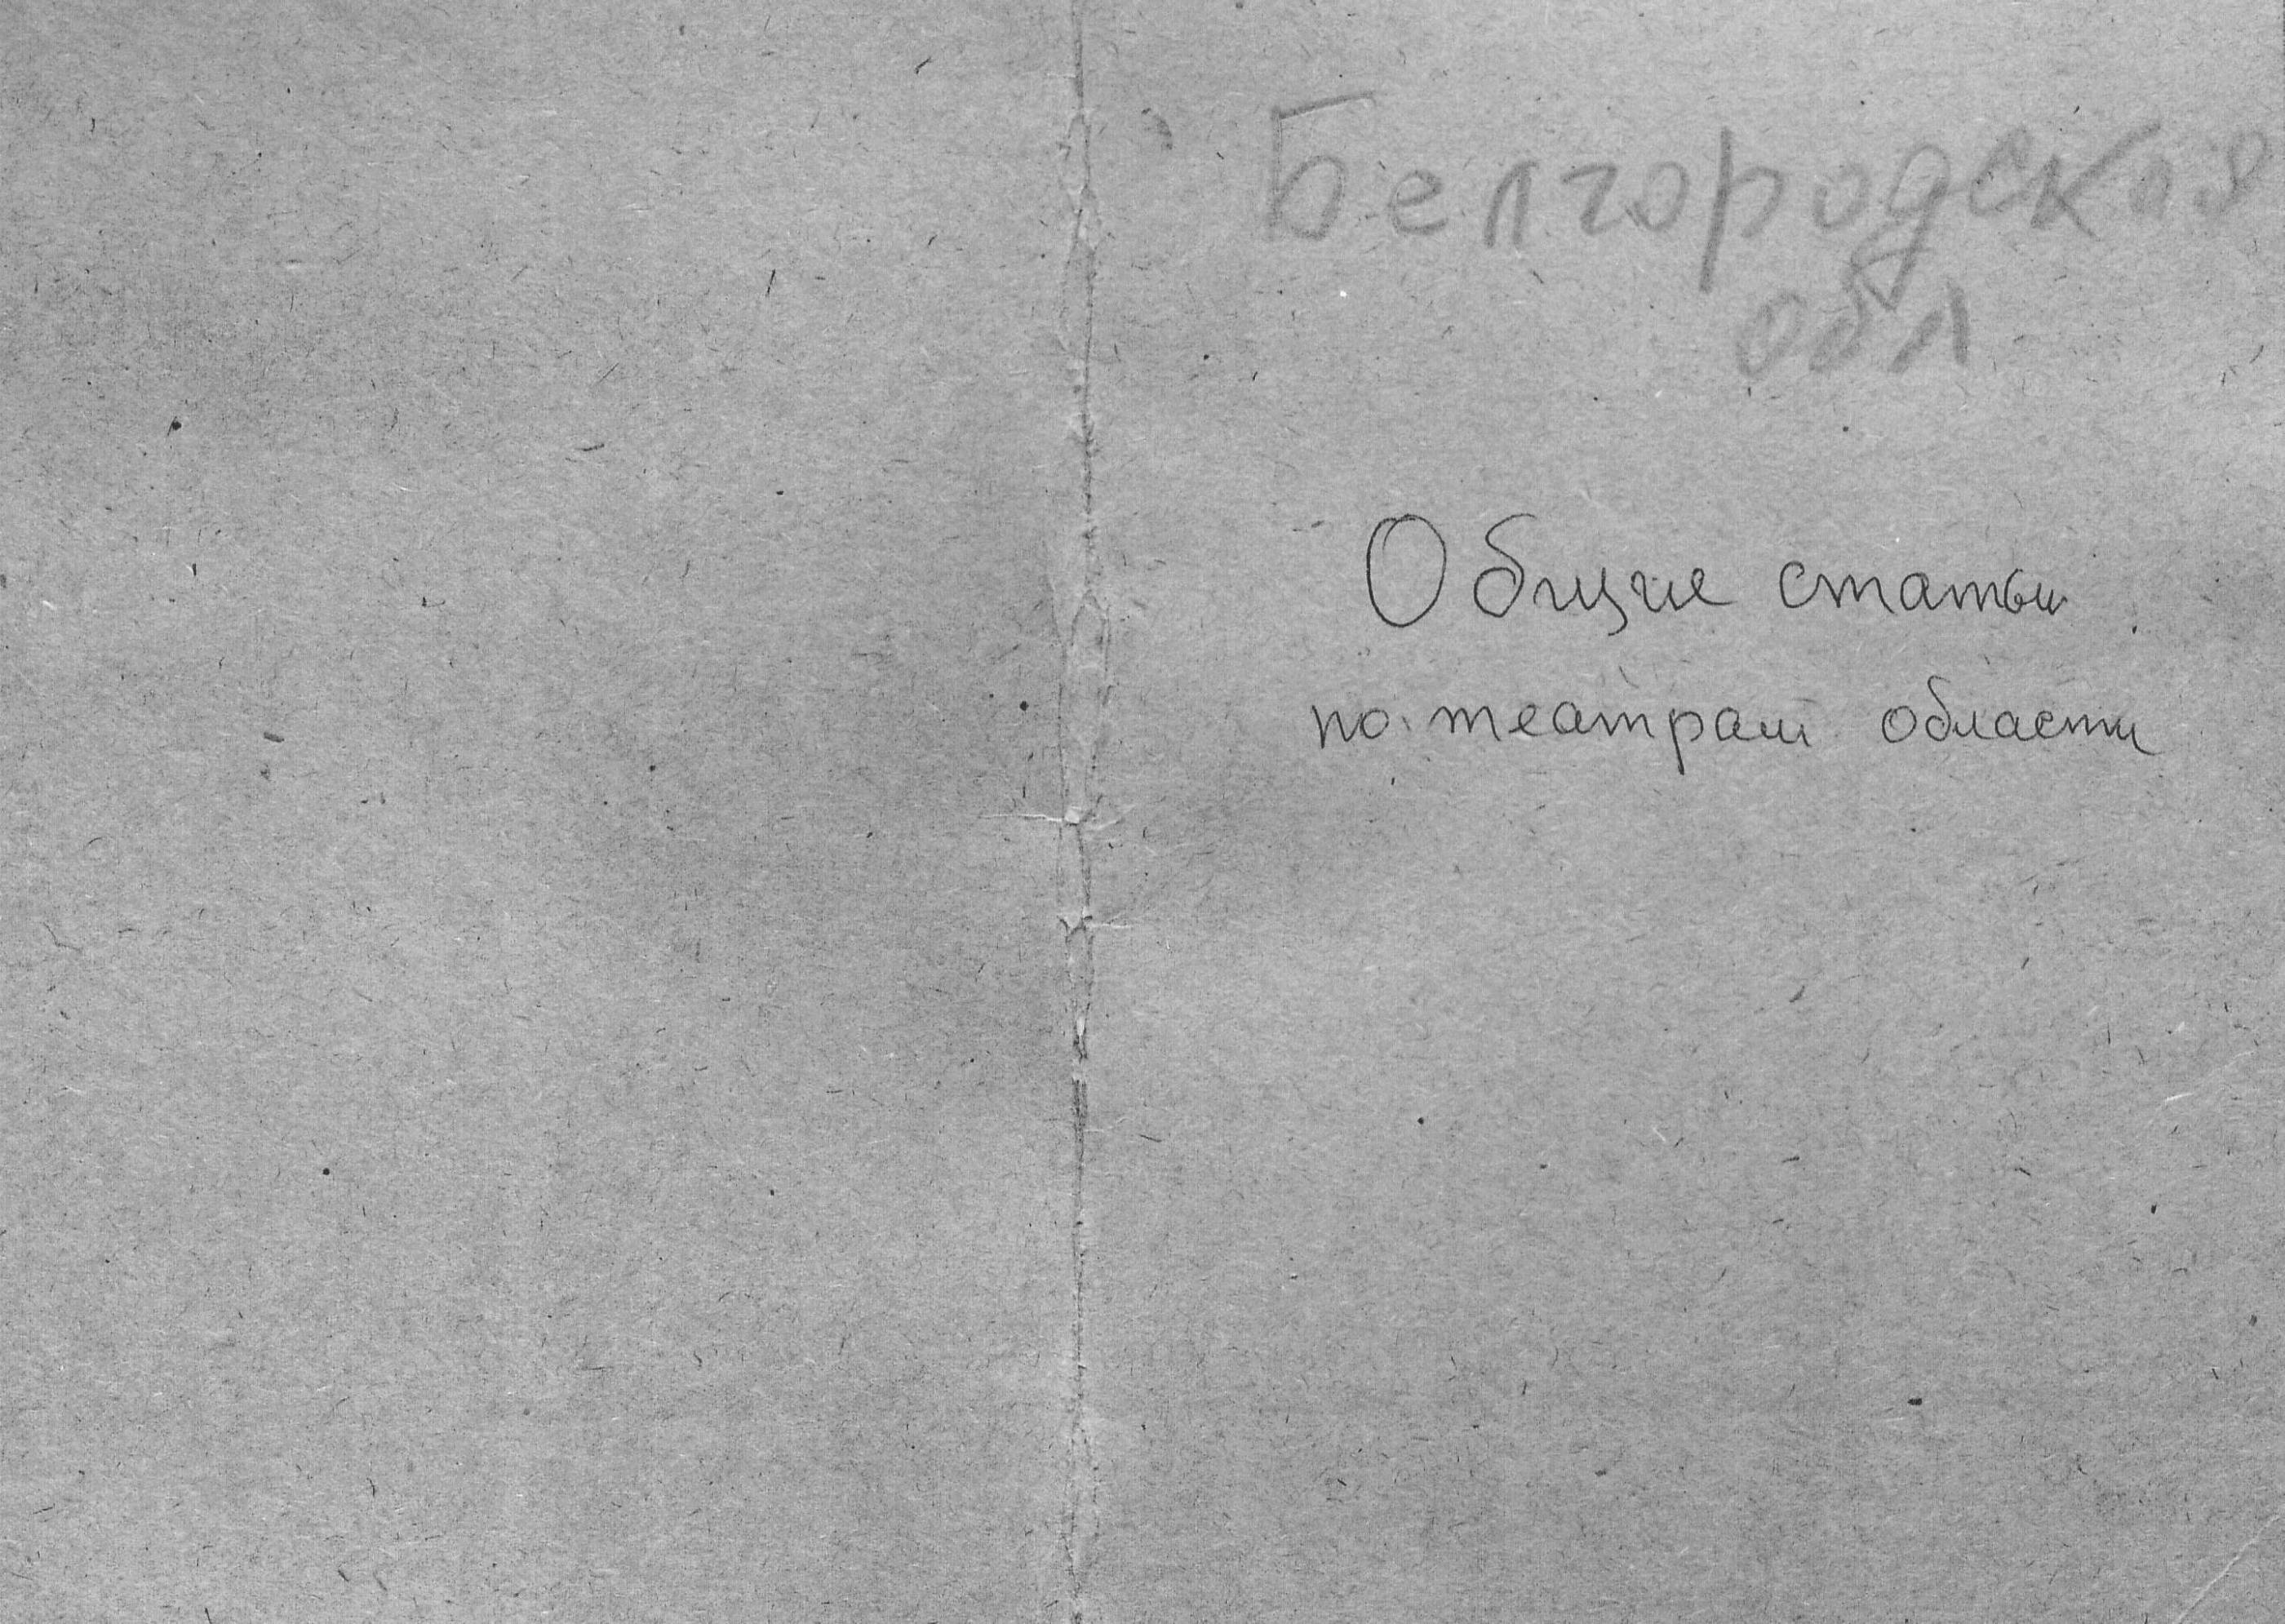 Белгородская
обл
Общие статьи
по театрам области